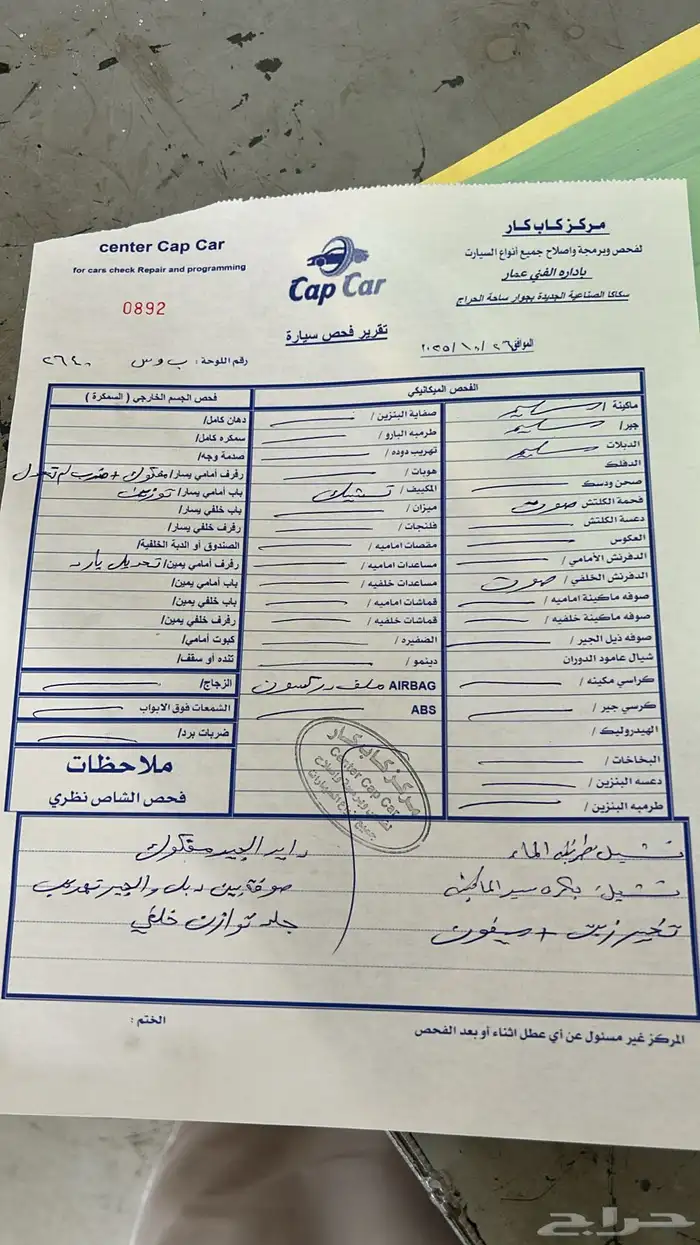 مركز كاب كار
لفحص وبرمجة واصلاح جميع أنواع السيارت
باداره الفني عمار
سكاكا الصناعية الجديدة بجوار ساحة الحراج
center Cap Car
for cars check Repair and programming
0892
Cap Car
تقرير فحص سيارة
الموافق ٢٠٢٥/١٠/٢٦
رقم اللوحة:
الفحص الميكانيكي
ماكينة / سليم
جير/ سليم
الدبلات سليم
الدفلك
صحن ودسك
فحمة الكلتش صوت
دعسة الكلتش
العكوس
الدفرنش الأمامي /
الدفرنش الخلفي / صوت
صوفه ماكينة اماميه /
صوفه ماكينة خلفيه /
صوفه ذيل الجير /
شيال عامود الدوران
كراسي مكينه /
كرسي جير /
الهيدروليك /
البخاخات /
دعسه البنزين /
طرمبه البنزين /
صفاية البنزين /
طرمبه البارو /
تهريب دوده /
هوبات /
المكييف / تشيك
ميزان /
فلنجات /
مقصات اماميه /
مساعدات اماميه /
مساعدات خلفيه /
قماشات اماميه /
قماشات خلفيه /
الضفيره /
دينمو /
AIRBAG ملف دركسون
ABS
فحص الجسم الخارجي ( السمكرة )
دهان كامل/
سمكره كامل/
صدمة وجه/
رفرف أمامي يسار/ مفكوك + ضرب لم تعدل
باب أمامي يسار/ توزين
باب خلفي يسار/
رفرف خلفي يسار/
الصندوق أو الدبة الخلفية/
رفرف أمامي يمين/ تعديل بارد
باب أمامي يمين/
باب خلفي يمين/
رفرف خلفي يمين/
كبوت أمامي/
تنده أو سقف/
الزجاج/
الشمعات فوق الابواب
ضربات برد/
ملاحظات
فحص الشاص نظري
مركز كاب كار
Center Cap Car
تشيل طرمبة الماء
تشيل بكره سير الماكينه
تغير زيت + سيفون
رايد الجير مفكوك
صوفة بين دبل والجير تهريب
جلد توازن خلفي
المركز غير مسئول عن أي عطل اثناء أو بعد الفحص
الختم :
حراج